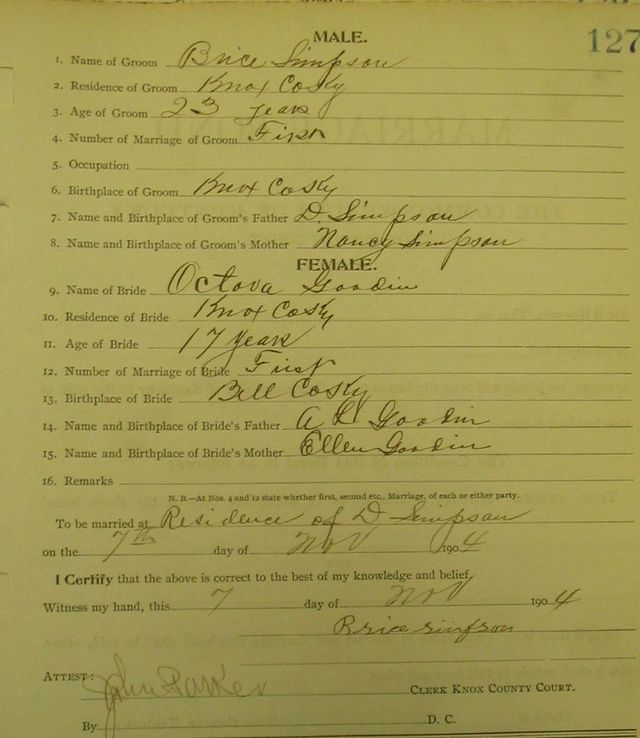 127
MALE.
1. Name of Groom Brice Simpson
2. Residence of Groom Knox Co Ky
3. Age of Groom 23 years
4. Number of Marriage of Groom First
5. Occupation
6. Birthplace of Groom Knox Co Ky
7. Name and Birthplace of Groom's Father D. Simpson
8. Name and Birthplace of Groom's Mother Nancy Simpson
FEMALE.
9. Name of Bride Octova Goodin
10. Residence of Bride Knox Co Ky
11. Age of Bride 17 years
12. Number of Marriage of Bride First
13. Birthplace of Bride Bell Co Ky
14. Name and Birthplace of Bride's Father A L Goodin
15. Name and Birthplace of Bride's Mother Ellen Goodin
16. Remarks
N. B.—At Nos. 4 and 12 state whether first, second etc., Marriage, of each or either party.
To be married at Residence of D Simpson
on the 7th day of Nov 1904
I Certify that the above is correct to the best of my knowledge and belief.
Witness my hand, this 7 day of Nov 1904
Brice Simpson
ATTEST: John Parker CLERK KNOX COUNTY COURT.
By D. C.